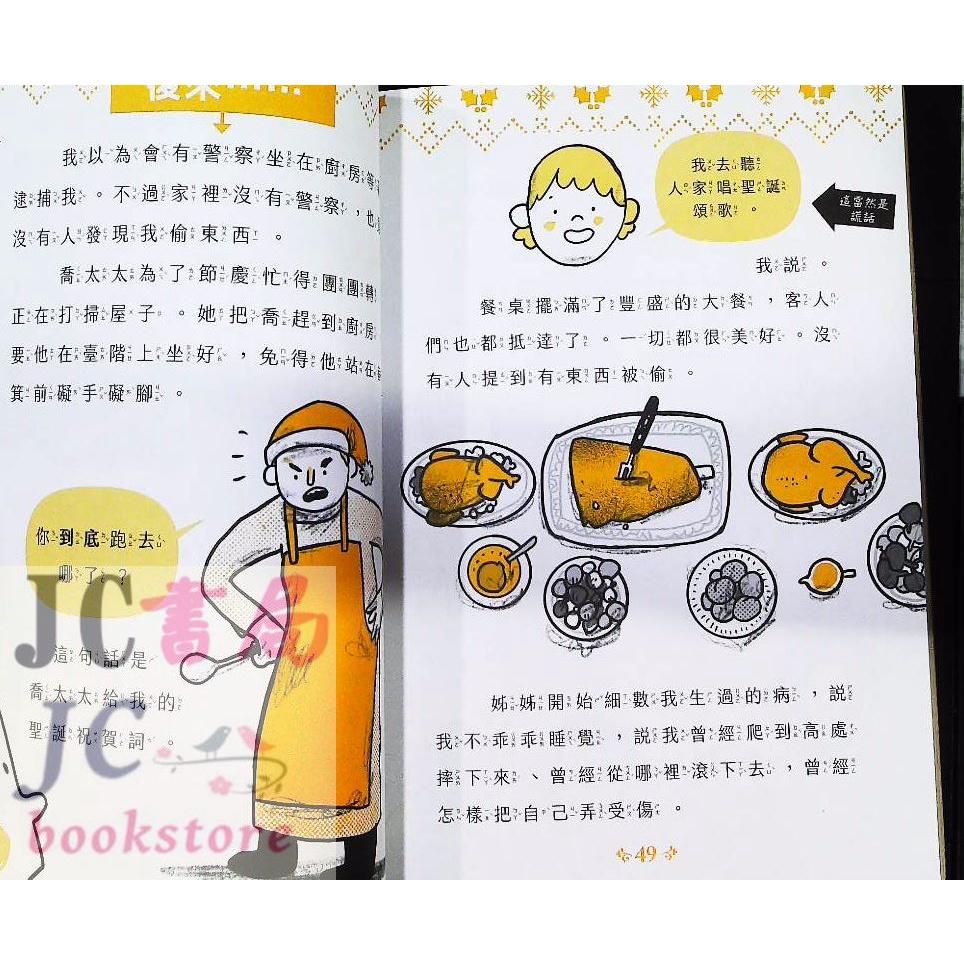 後來……
我以為會有警察坐在廚房等
逮捕我。不過家裡沒有警察，也
沒有人發現我偷東西。
喬太太為了節慶忙得團團轉
正在打掃屋子。她把喬趕到廚房
要他在臺階上坐好，免得他站在
箕前礙手礙腳。
你到底跑去
哪了？
這句話是
喬太太給我的
聖誕祝賀詞。
JC書局
JC
bookstore
我去聽
人家唱聖誕
頌歌。
這當然是
謊話
我說。
餐桌擺滿了豐盛的大餐，客人
們也都抵達了。一切都很美好。沒
有人提到有東西被偷。
姊姊開始細數我生過的病，說
我不乖乖睡覺，說我曾經爬到高處
摔下來、曾經從哪裡滾下去，曾經
怎樣把自己弄受傷。
49